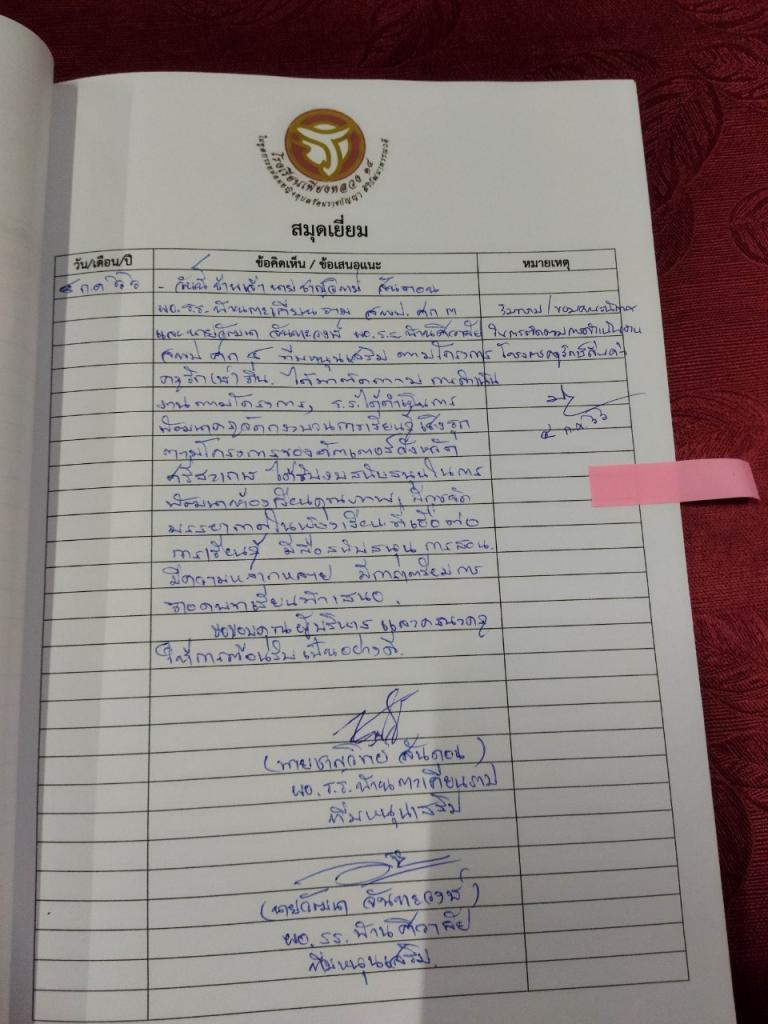 โรงเรียนเพียงหลวง ๑๕
สมุดเยี่ยม
วัน/เดือน/ปี
ข้อคิดเห็น / ข้อเสนอแนะ
หมายเหตุ
๕ ก.ค. ๖๖
- วันนี้ข้าพเจ้า นายชาญวิทย์ สันดอน
ผอ.รร. บ้านตาเคียนราม สพป. ศก ๓
และนายวัฒนา จันทะวงษ์ ผอ.ร.ร. บ้านศิวาลัย
สพป ศก ๔ ทีมหนุนเสริม ตามโครงการ
ได้มาติดตาม การดำเนิน
งานตามโครงการ, ร.ร.ได้ดำเนินการ
พัฒนาครูจัดกระบวนการเรียนรู้เชิงรุก
ตามโครงการของ จังหวัด
ศรีสะเกษ ได้รับงบสนับสนุนในการ
พัฒนาห้องเรียนคุณภาพ, มีการจัด
บรรยากาศในห้องเรียนที่เอื้อต่อ
การเรียนรู้ มีสื่อสนับสนุนการสอน
มีความหลากหลาย มีการเตรียมการ
นำเสนอ.
ขอขอบคุณผู้บริหาร และคณะครู
ให้การต้อนรับเป็นอย่างดี.
รับทราบ / ขอบคุณ
๕ ก.ค. ๖๖
(นายชาญวิทย์ สันดอน)
ผอ.ร.ร.บ้านตาเคียนราม
ทีมหนุนเสริม
(นายวัฒนา จันทะวงษ์)
ผอ.รร.บ้านศิวาลัย
ทีมหนุนเสริม.